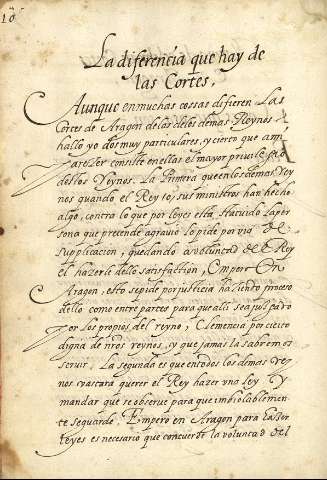 10
La diferencia que hay de
las Cortes.
Aunque en muchas cossas difieren Las
Cortes de Aragon de las de los demas Reynos
hallo yo dos muy particulares, y cierto que a mi
consiste en ellas el mayor
destos Reynos. La Primera que en los demas Rey
nos quando el Rey, o, sus ministros han hecho
algo, contra lo que por leyes esta statuido La per
sona que pretende agravio lo pide por via De
supplicacion, quedando a voluntad del Rey
el hazerle dello satisfaction, Empero En
Aragon, esto se pide por justicia haziendo processo
dello como entre partes para que alli sea juzgado
por los propios del reyno, Clemencia por cierto
digna de nros reynos, y que jamas la sabremos
servir. La segunda es que en todos los demas rey
nos vastara querer el Rey hazer vna Ley Y
mandar que se observe para que inviolablemen
te se guarde. Empero en Aragon para hazer
leyes es necesario que concuerde la voluntad del